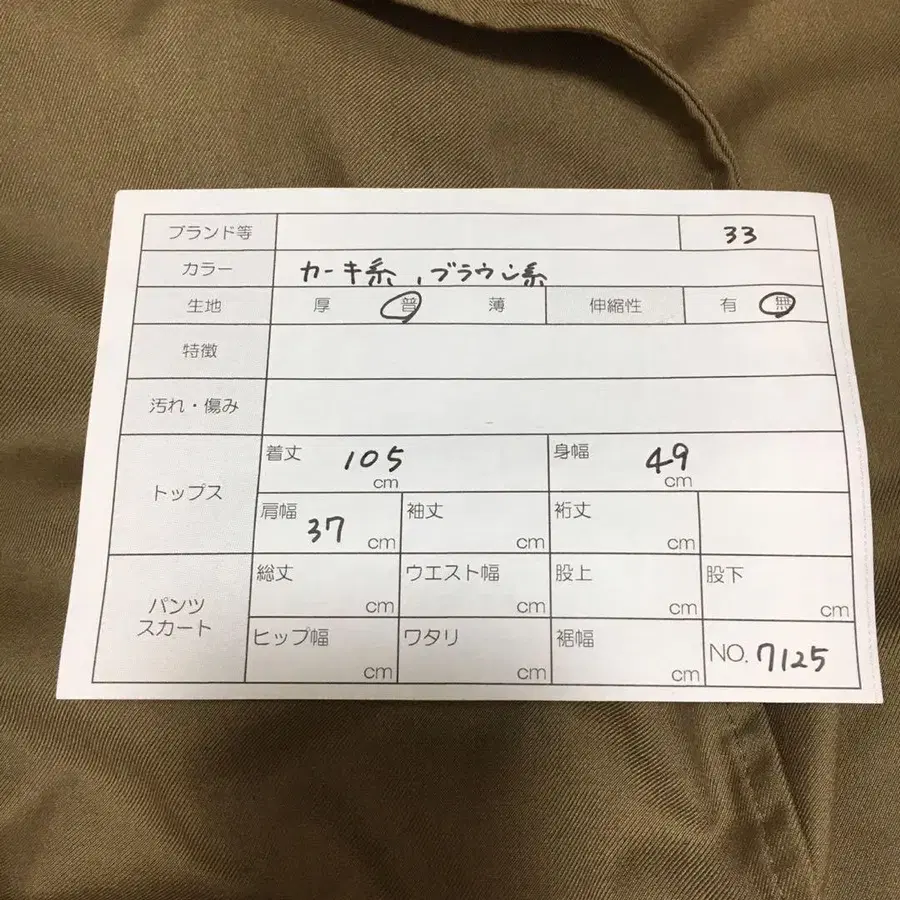 ブランド等 33
カラー カーキ系、ブラウン系
生地 厚 普 薄 伸縮性 有 無
特徴
汚れ・傷み
トップス
着丈 105 cm 身幅 49 cm
肩幅 37 cm 袖丈 cm 裄丈 cm
パンツ
スカート
総丈 cm ウエスト幅 cm 股上 cm 股下 cm
ヒップ幅 cm ワタリ cm 裾幅 cm NO. 7125